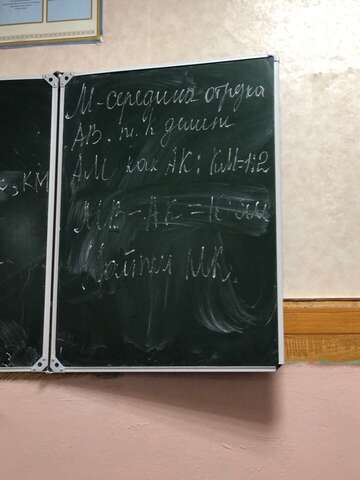 М-середина отрезка
АВ. т. К делит
АМ как АК : КМ=1:2
МВ - АК = К мм
Найти МК.
, КМ